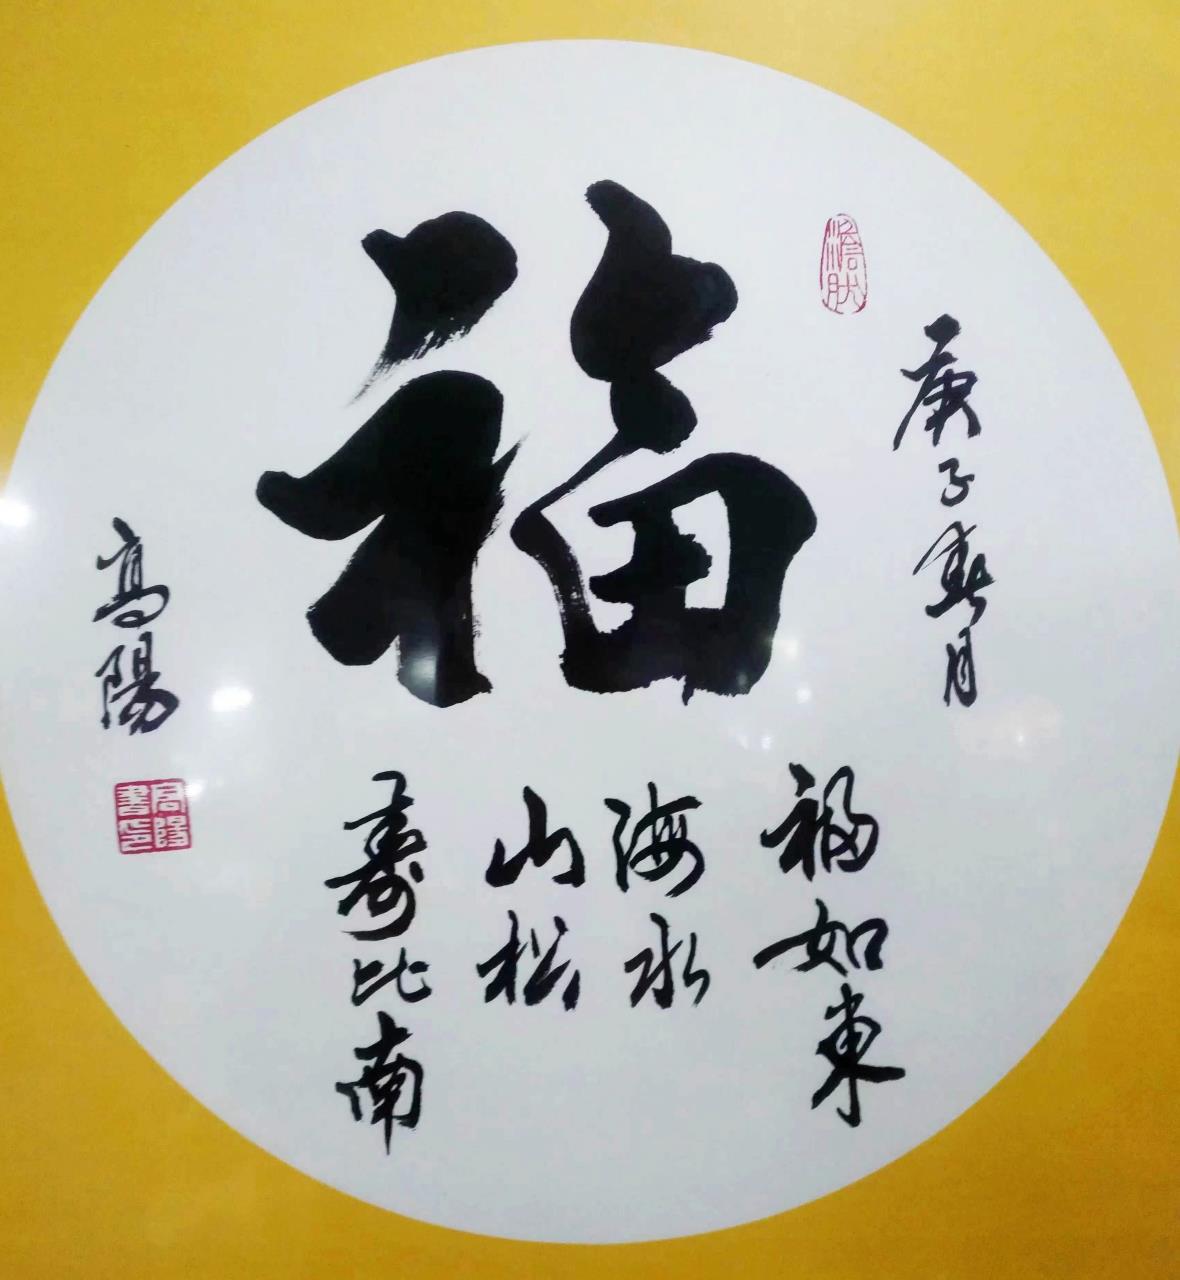 福
庚子春月
福如東
海水
壽比南
山松
高陽
高陽書印